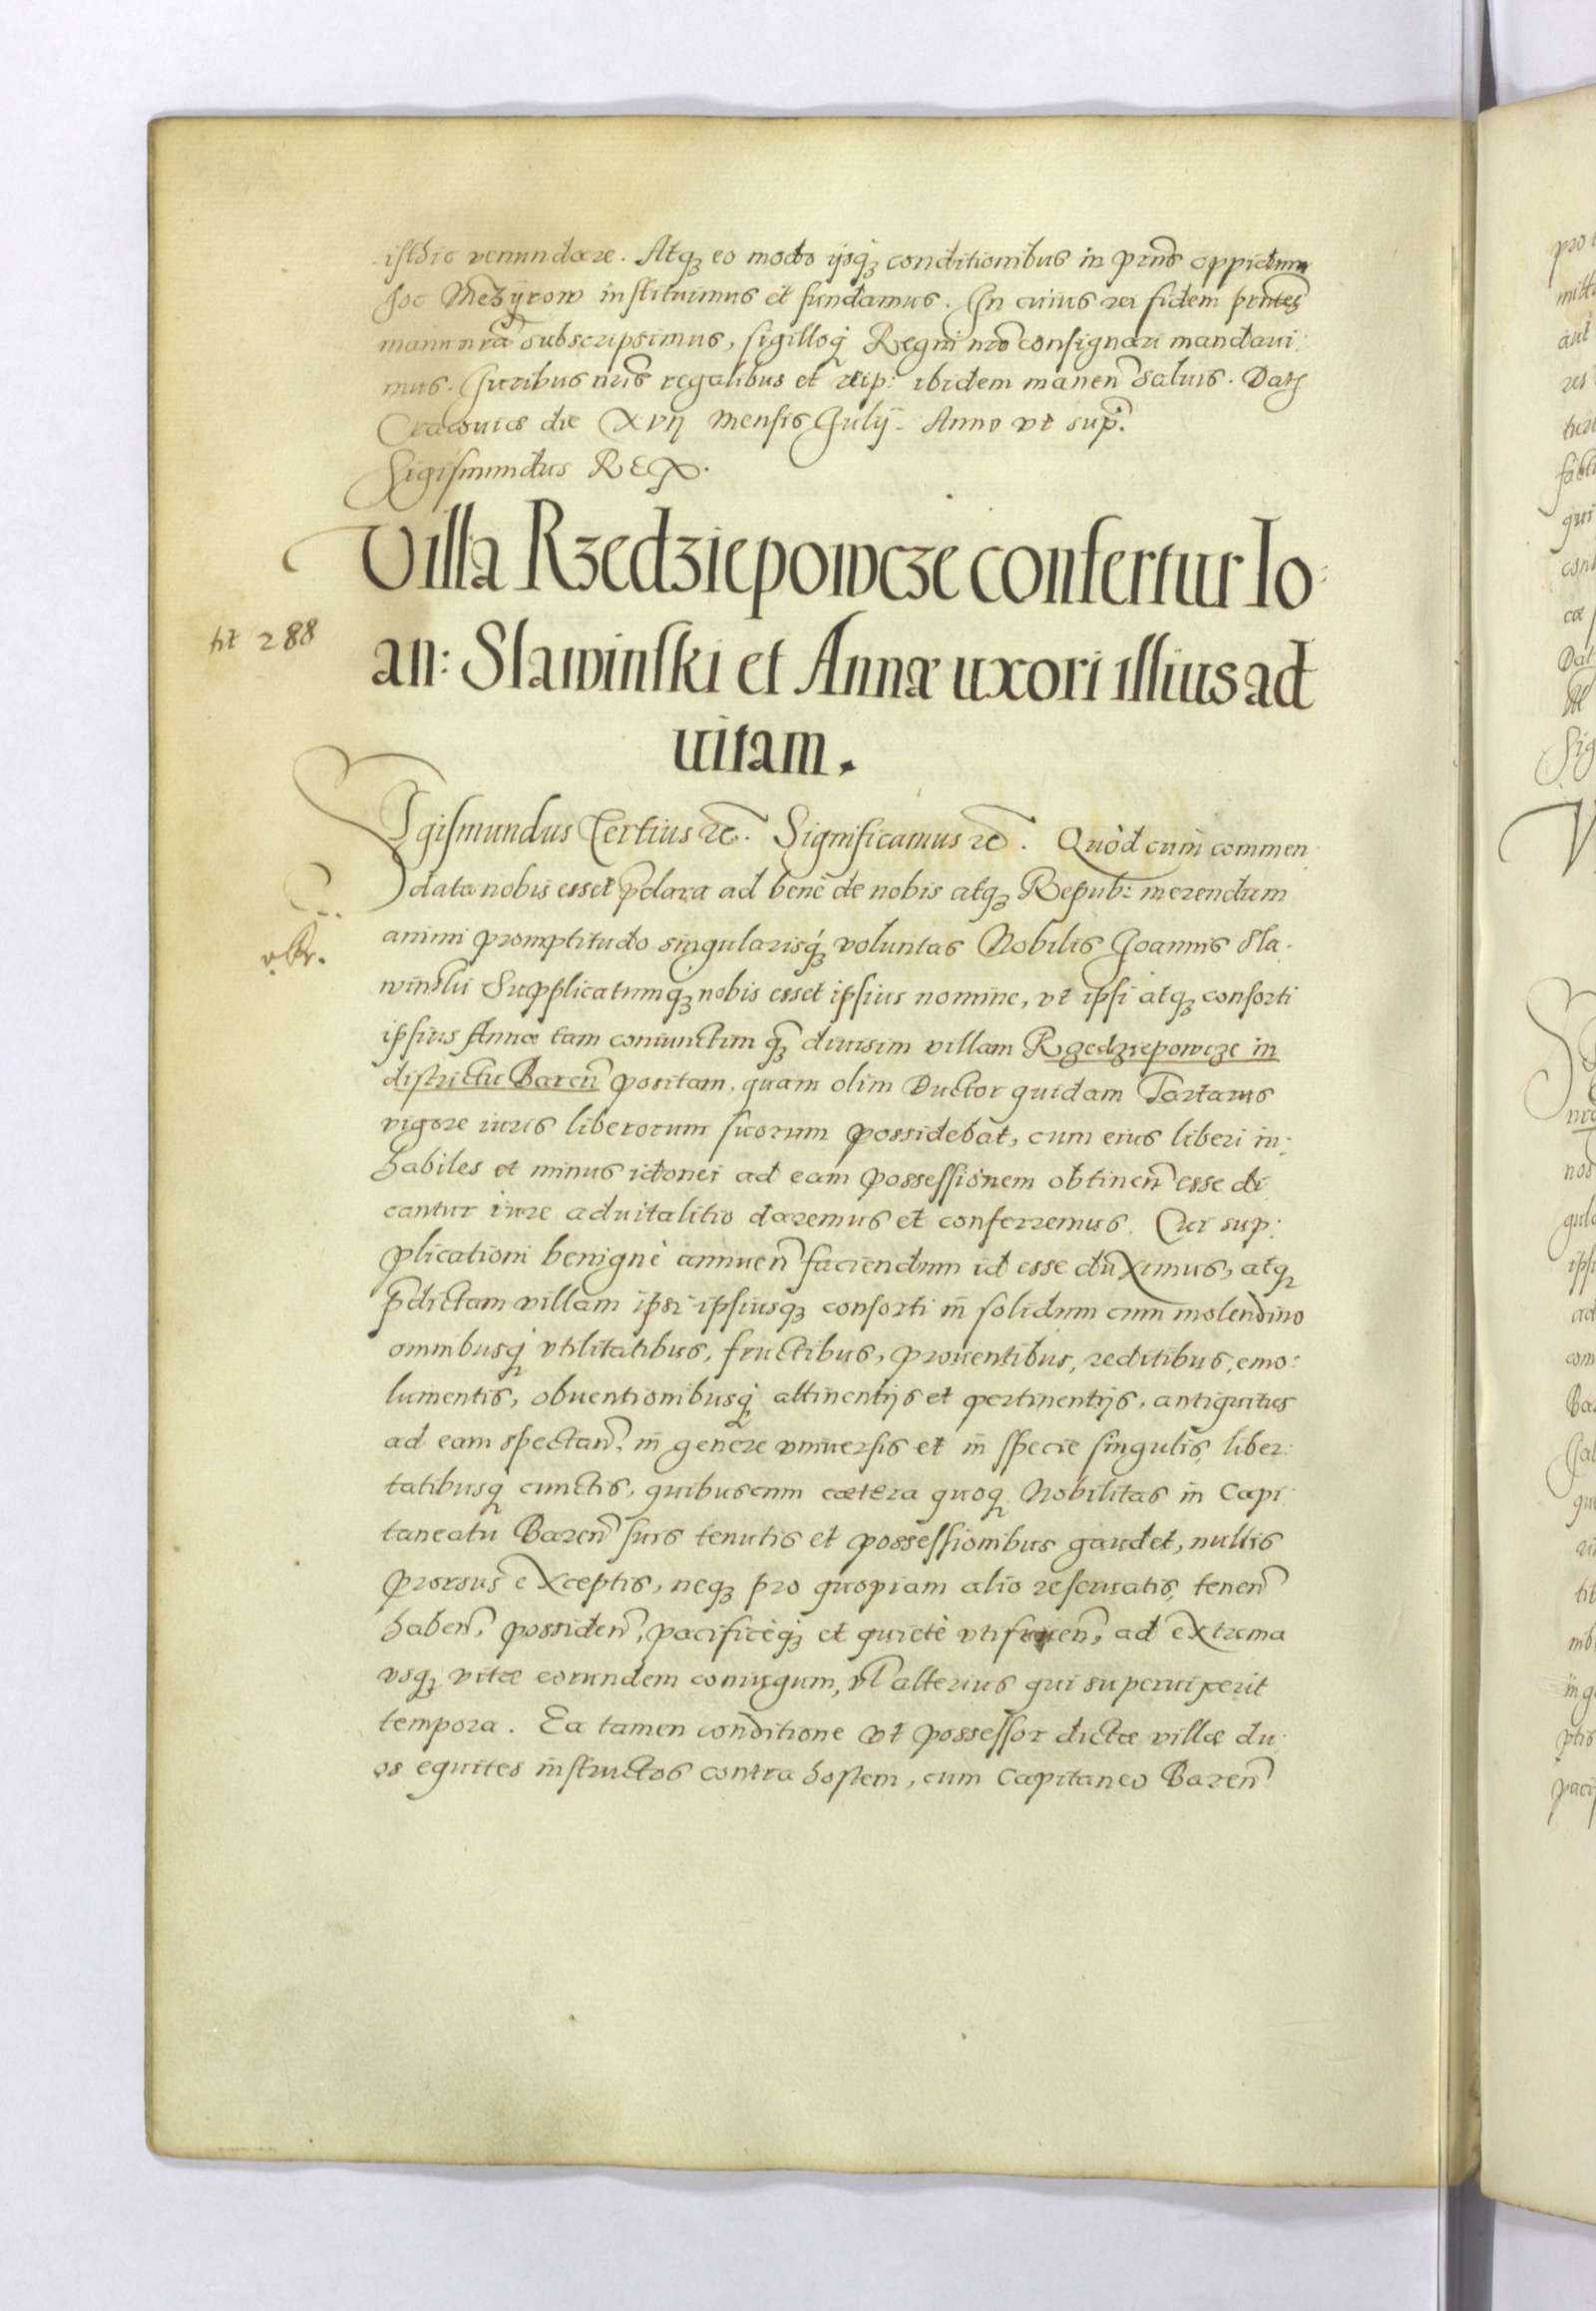 isthic venundare. Atq₃ eo modo ijsq₃ conditionibus in prñs oppidum
hoc Mezÿrow instituimus et fundamus. In cuius rei fidem prñtes
manu nrã subscripsimus, sigilloq₃ Regni nrõ consignari mandaui:
mus. Iuribus nrĩs regalibus et reip: ibidem manen̄ saluis. Dat₃
Cracouiæ die XVII Mensis Julÿ. Anno vt sup:
Sigismundus REX.
Villa Rzedziepowcze confertur Io:
an: Slawinski et Annæ uxori illius ad
uitam.
ht 288
Sigismundus Tertius etc. Significamus etc. Quòd cum commen
data nobis esset p̄clara ad benè de nobis atq₃ Repub: merendum
animi promptitudo singularisq₃ voluntas Nobilis Joannis Sla:
winski Supplicatumq₃ nobis esset ipsius nomine, vt ipsi atq₃ consorti
ipsius Annæ tam coniunctim q₃ diuisim villam Rzedziepowcze in
districtu Baren̄ positam, quam olim Ductor quidam Tartarus
vigore iuris liberorum suorum possidebat, cum eius liberi in:
habiles et minus idonei ad eam possessionem obtinen̄ esse di
cantur iure aduitalitio daremus et conferremus. Cui sup:
plicationi benignè annuen̄ faciendum id esse duximus, atq₃
p̄dictam villam ipsi ipsiusq₃ consorti in solidum cum molendino
omnibusq₃ vtilitatibus, fructibus, prouentibus, reditibus, emo:
lumentis, obuentionibusq₃ attinentijs et pertinentijs, antiquitus
ad eam spectan̄, in genere vniuersis et in specie singulis, liber:
tatibusq₃ cunctis, quibuscum cætera quoq₃ Nobilitas in Capi
taneatu Baren̄ suis tenutis et possessionibus gaudet, nullis
prorsus exceptis, neq₃ pro quopiam alio reseruatis, tenen̄
haben̄, possiden̄, pacificèq₃ et quietè vtifruen̄, ad extrema
vsq₃ vitæ eorundem coniugum, vl̄ alterius qui superuixerit
tempora. Ea tamen conditione vt possessor dictæ villæ du
os equites instructos contra hostem, cum Capitaneo Baren̄